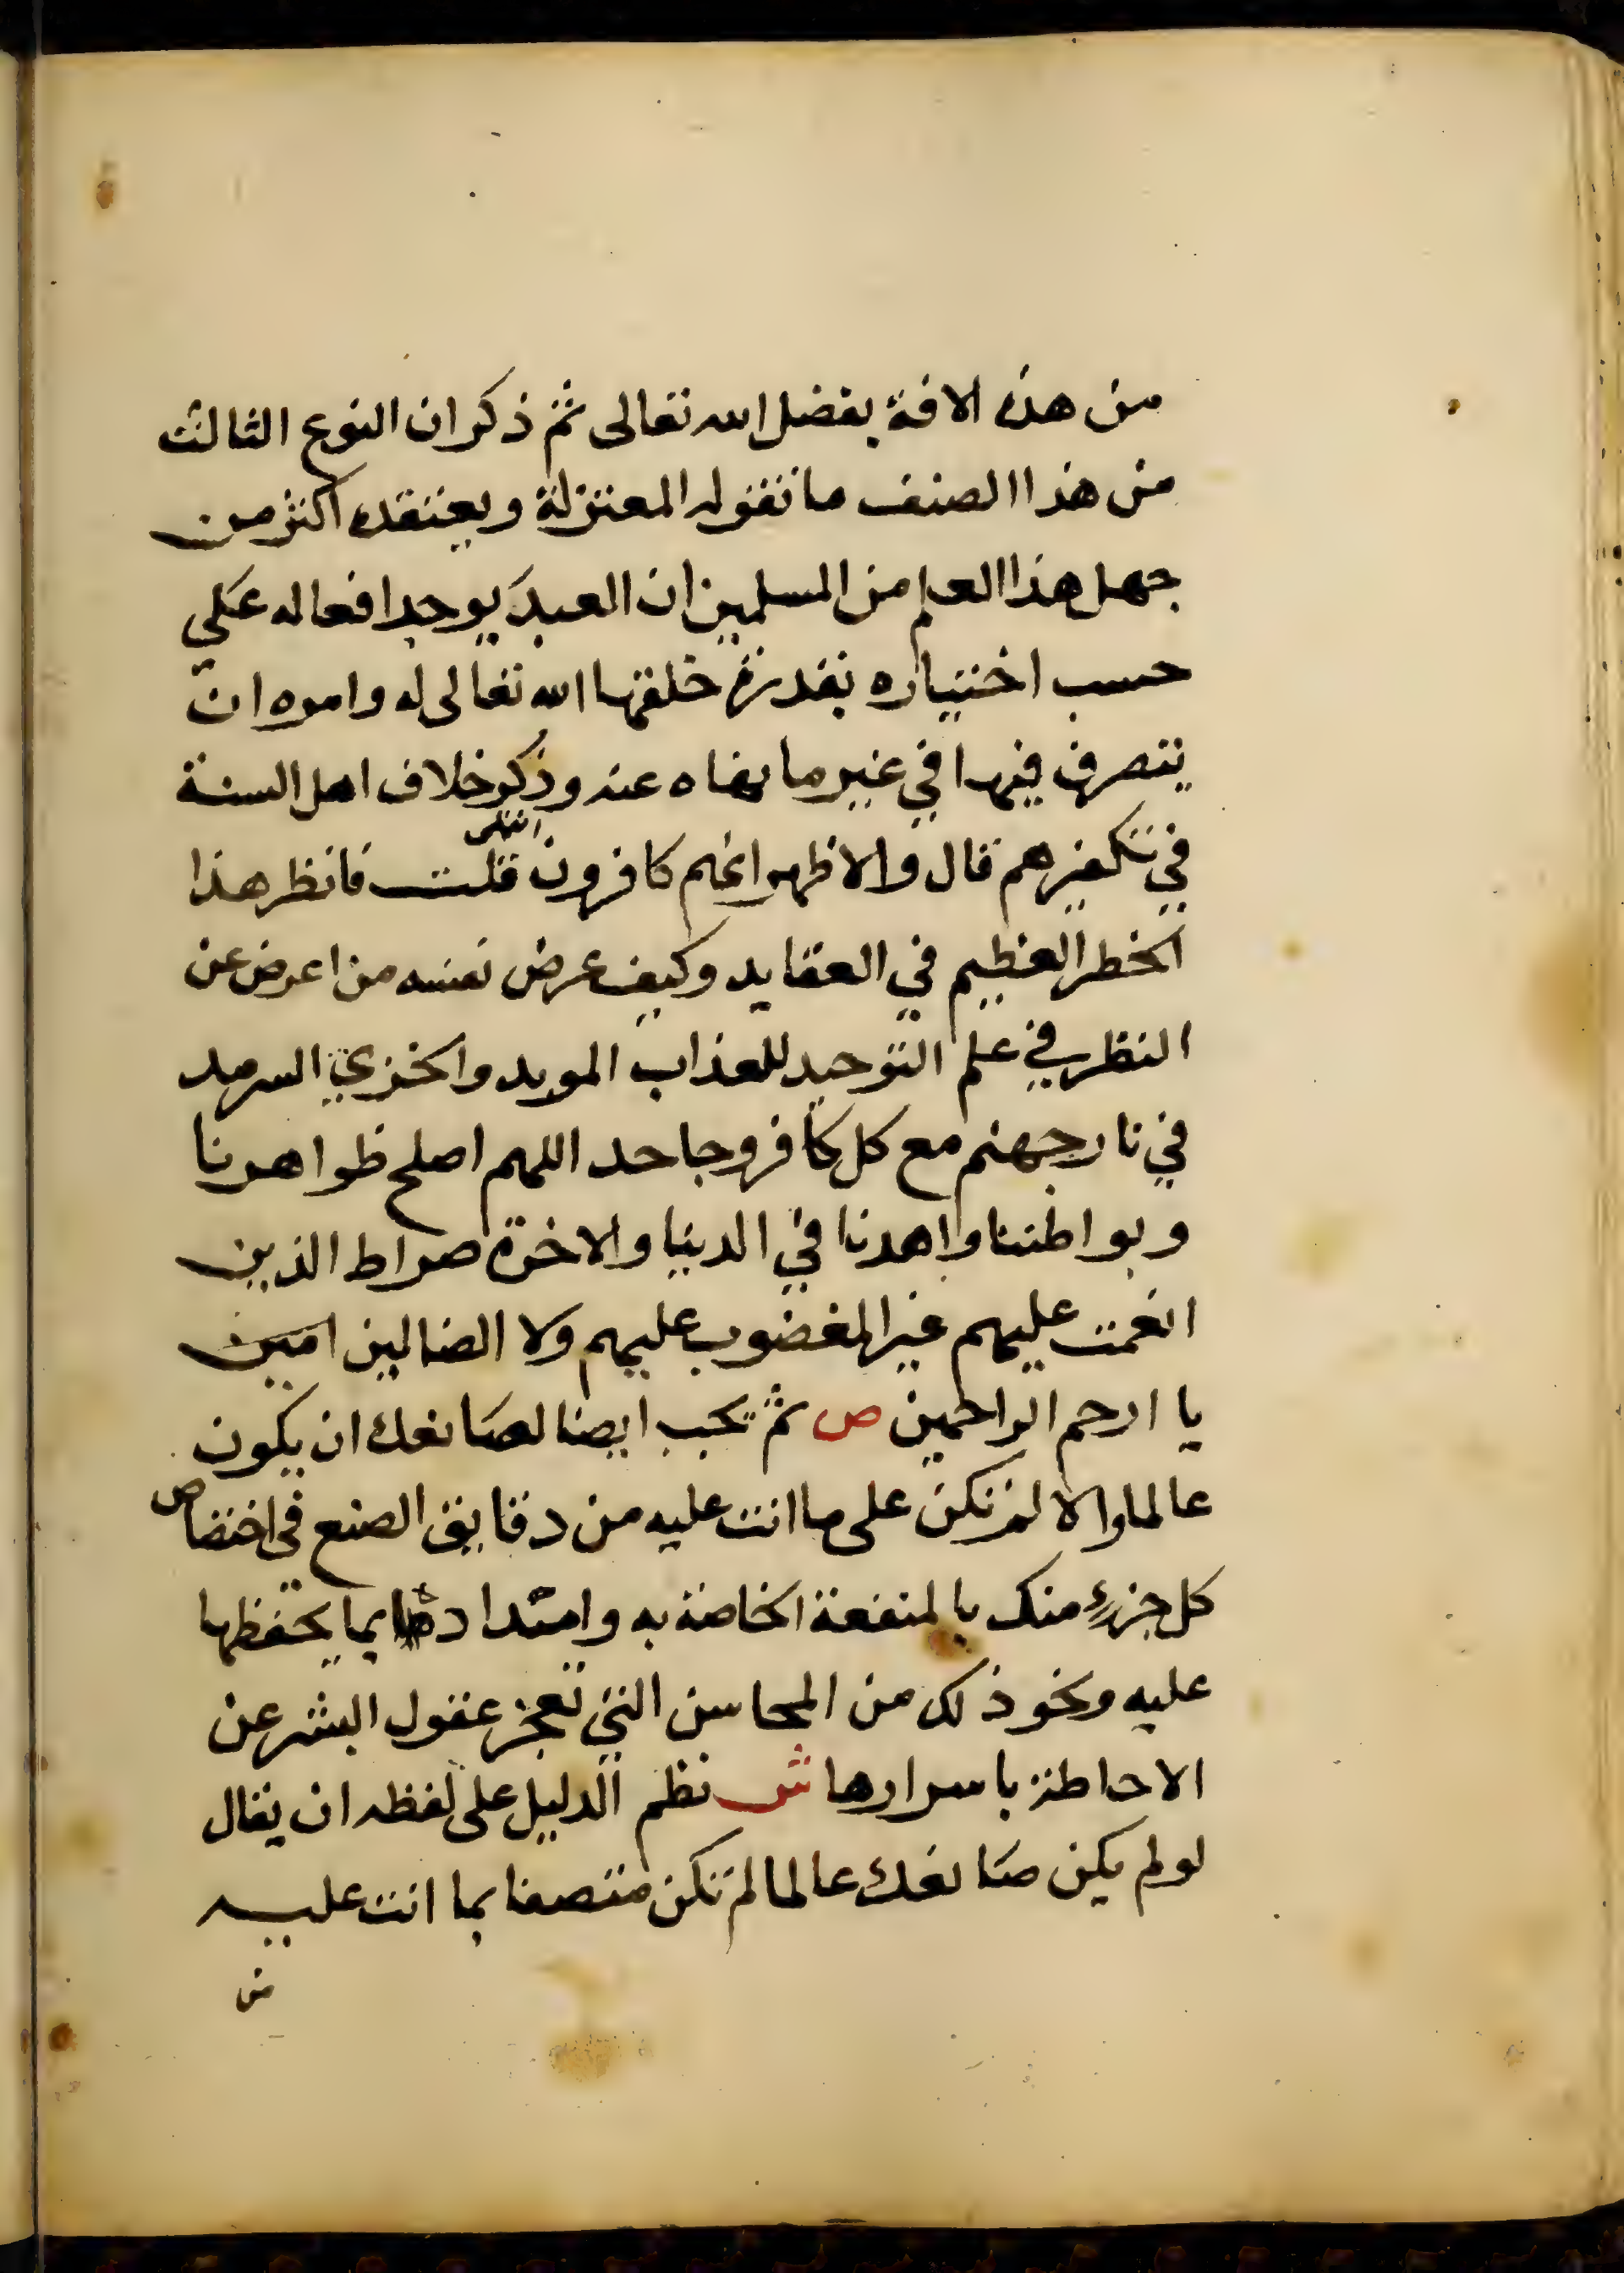 من هذه الافة بفضل الله تعالى ثم ذكر ان النوع الثالث
من هذا الصنف ما تقوله المعتزلة ويعتقده اكثر من
جهل هذا العلم من المسلمين ان العبد يوجد افعاله على
حسب اختياره بقدرة خلقها الله تعالى له وامره ان
يتصرف فيها في غير ما نهاه عنه وذكر خلاف اهل السنة
في تكفيرهم قال والاظهر انهم كافرون انتهى قلت فانظر هذا
الخطر العظيم في العقايد وكيف عرض نفسه من اعرض عن
النظر في علم التوحيد للعذاب الموبد والخزي السرمد
في نار جهنم مع كل كافر وجاحد اللهم اصلح ظواهرنا
وبواطننا واهدنا في الدنيا والاخرة صراط الذين
انعمت عليهم غير المغضوب عليهم ولا الضالين امين
يا ارحم الراحمين ص ثم يجب ايضا لصانعك ان يكون
عالما والا لم تكن على ما انت عليه من دقايق الصنع في اختصاص
كل جزء منك بالمنفعة الخاصة به وامتدادها بما يحفظها
عليه ونحو ذلك من المحاسن التي تعجز عقول البشر عن
الاحاطة باسرارها ش نظم الدليل على لفظه ان يقال
لو لم يكن صانعك عالما لم تكن متصفا بما انت عليه
من